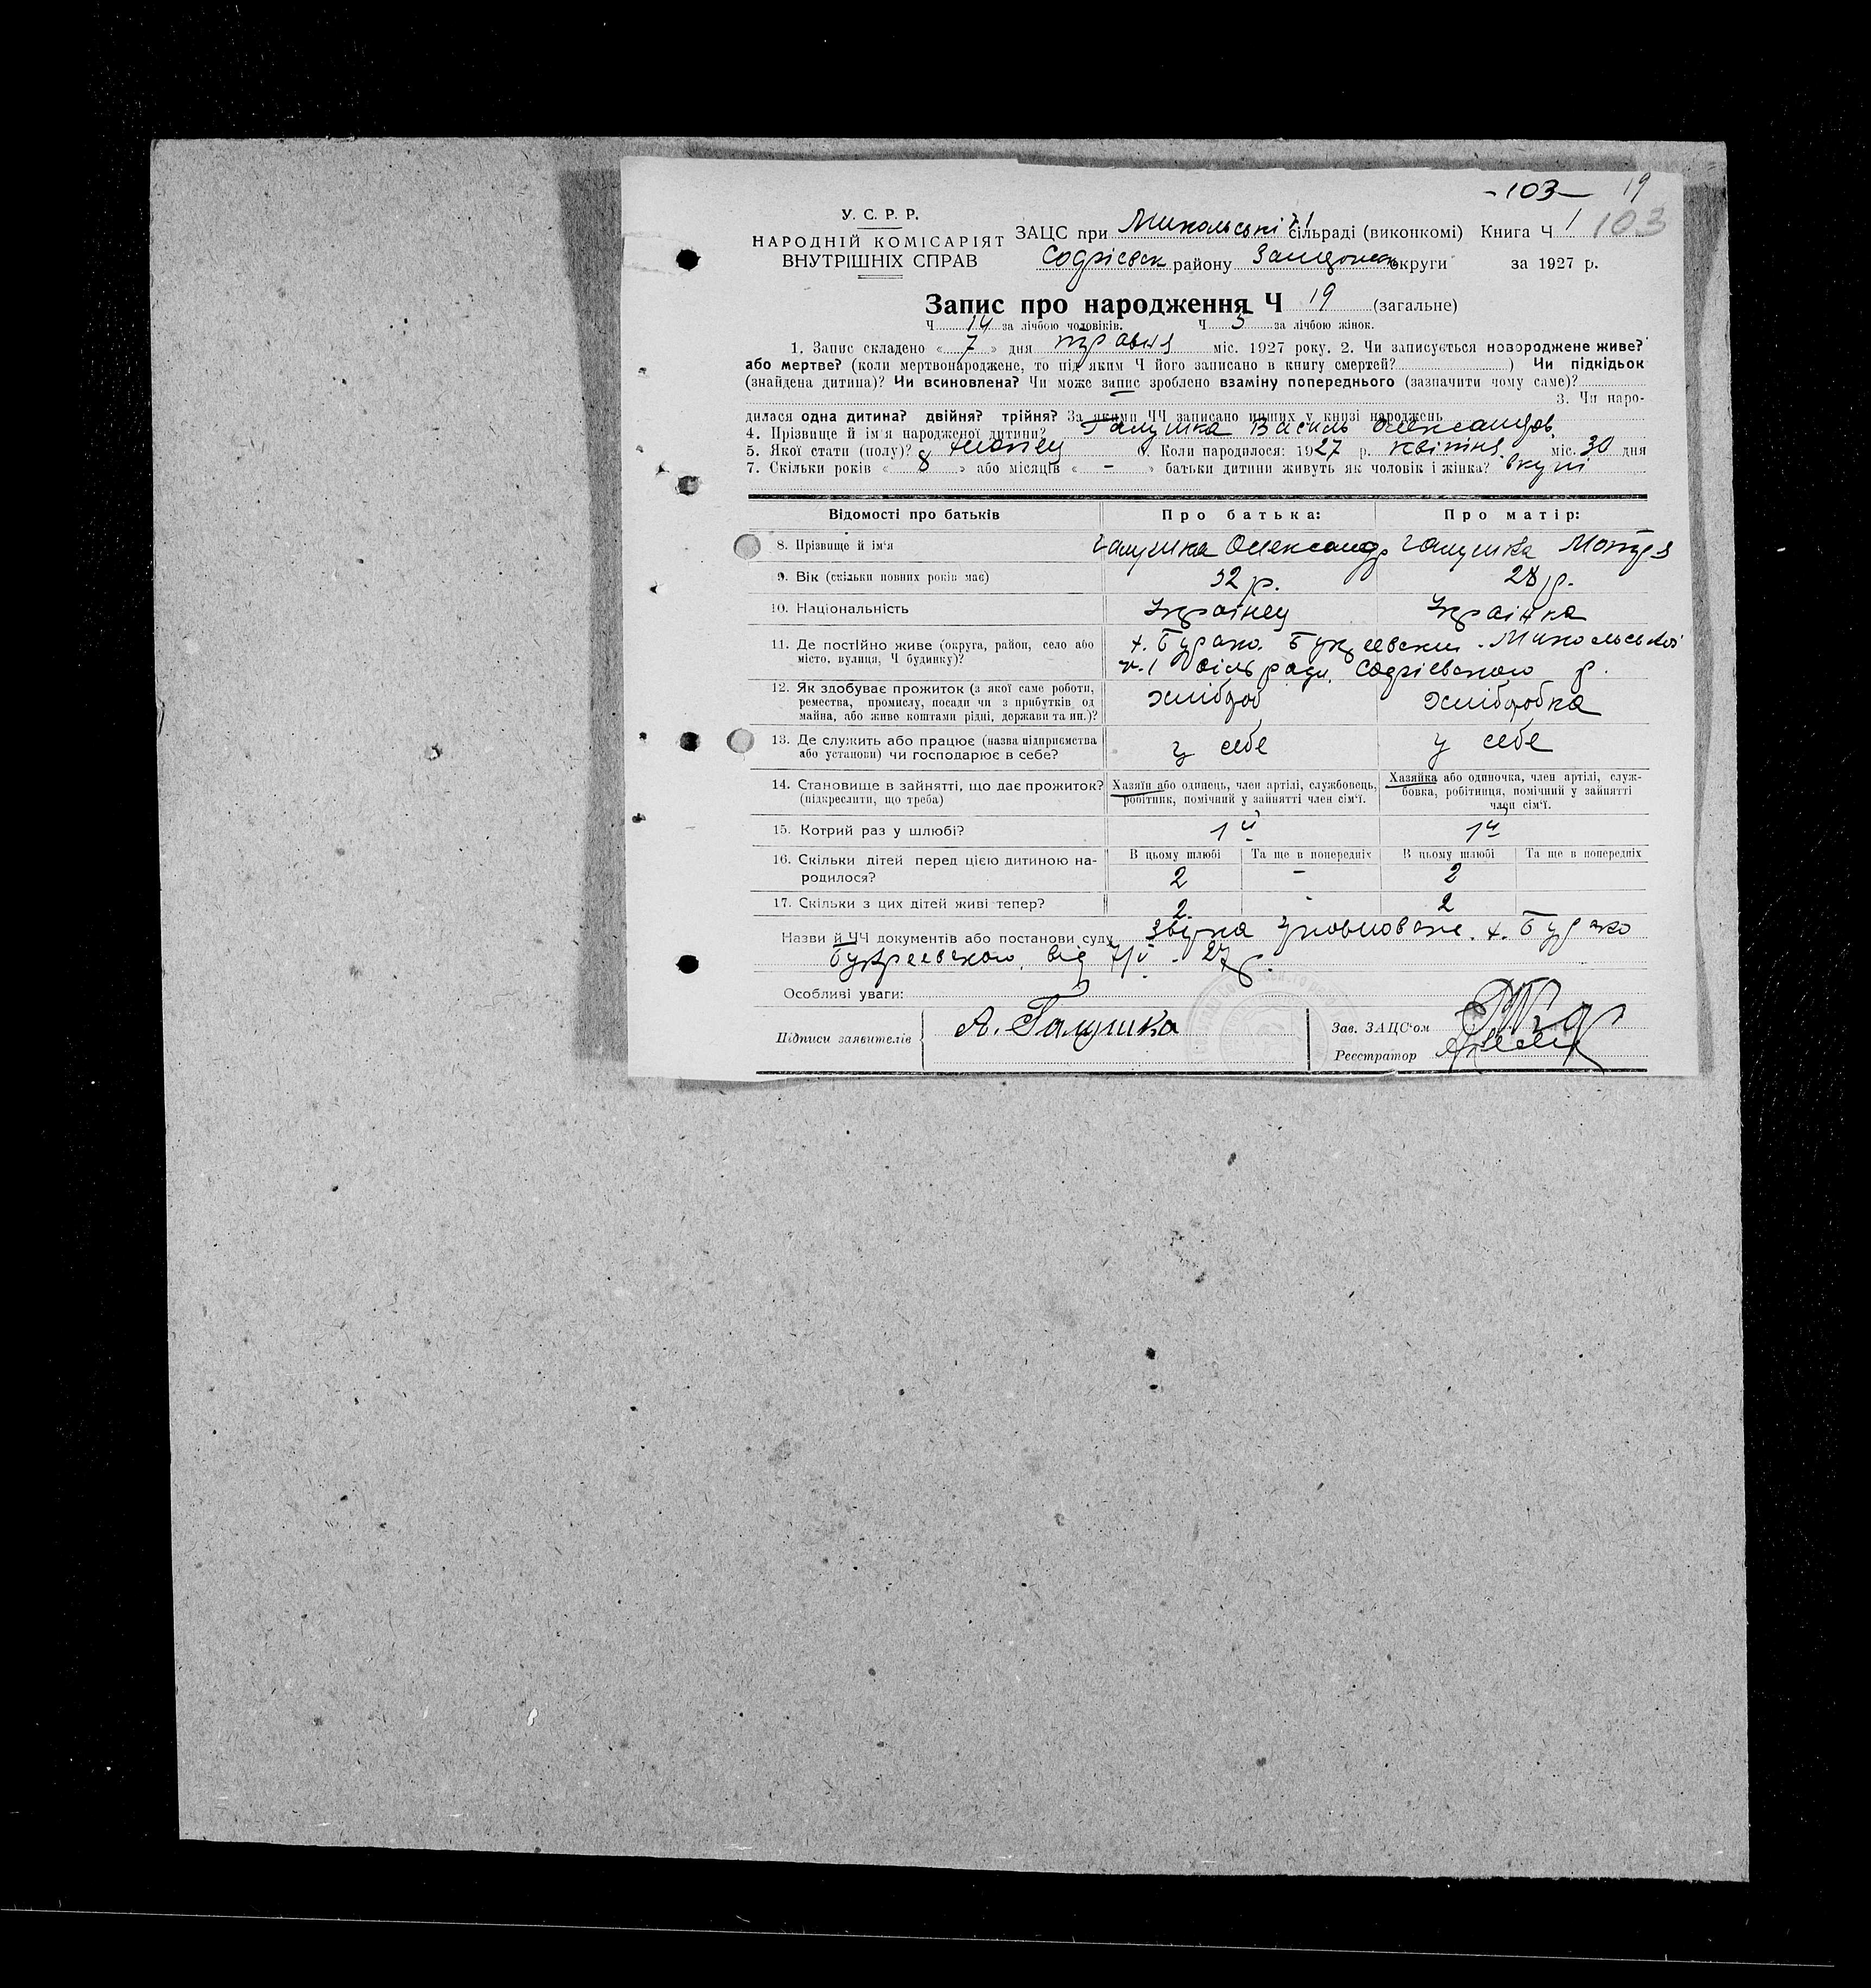 -103- 19
У. С. Р. Р.
НАРОДНІЙ КОМІСАРІЯТ
ВНУТРІШНІХ СПРАВ
ЗАЦС при Микольські №1 сільраді (виконкомі) Книга Ч 1 103
Софієвськ району Запорожск округи за 1927 р.
Запис про народження Ч 19 (загальне)
Ч 14 за лічбою чоловіків. Ч 5 за лічбою жінок.
1. Запис складено « 7 » дня травня міс. 1927 року. 2. Чи записується новороджене живе?
або мертве? (коли мертвонароджене, то під яким Ч його записано в книгу смертей? ) Чи підкідьок
(знайдена дитина)? Чи всиновлена? Чи може запис зроблено взаміну попереднього (зазначити чому саме)?
3. Чи наро-
дилася одна дитина? двійня? трійня? За якими ЧЧ записано инших у книзі народжень
4. Прізвище й ім'я народженої дитини? Галушка Василь Олександров
5. Якої стати (полу)? хлопец 6. Коли народилося: 1927 р. квітня міс. 30 дня
7. Скільки років « 8 » або місяців « - » батьки дитини живуть як чоловік і жінка? вкупі
Відомості про батьків Про батька: Про матір:
8. Прізвище й ім'я Галушка Олександр Галушка Мотря
9. Вік (скільки повних років має) 32 р. 28 р.
10. Національність Українец Українка
11. Де постійно живе (округа, район, село або
місто, вулиця, Ч будинку)?
х. Бурако Микольської
№1 сільради, Софієвского р.
12. Як здобуває прожиток (з якої саме роботи,
ремества, промислу, посади чи з прибутків од
майна, або живе коштами рідні, держави та ин.)?
хлібороб хлібробка
13. Де служить або працює (назва підприємства
або установи) чи господарює в себе?
у себе у себе
14. Становище в зайнятті, що дає прожиток?
(підкреслити, що треба)
Хазяїн або одинець, член артілі, службовець,
робітник, помічний у зайнятті член сім'ї.
Хазяйка або одиночка, член артілі, служ-
бовка, робітниця, помічний у зайнятті
член сім'ї.
15. Котрий раз у шлюбі? 1й 1й
16. Скільки дітей перед цією дитиною на-
родилося?
В цьому шлюбі Та ще в попередніх В цьому шлюбі Та ще в попередніх
2 - 2
17. Скільки з цих дітей живі тепер? 2 - 2
Назви й ЧЧ документів або постанови суду х. Бурако
від 7/V - 27 р.
Особливі уваги:
Підписи заявителів А. Галушка
Зав. ЗАЦС'ом
Реєстратор